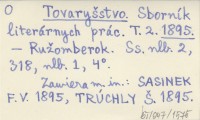 O Tovaryšstvo. Sborník
literárnych prác. T. 2. 1895.
– Ružomberok. Ss. nlb. 2,
318, nlb. 1, 4°.
Zawiera m. in.: SASINEK
F. V. 1895, TRÚCHLY Š. 1895.